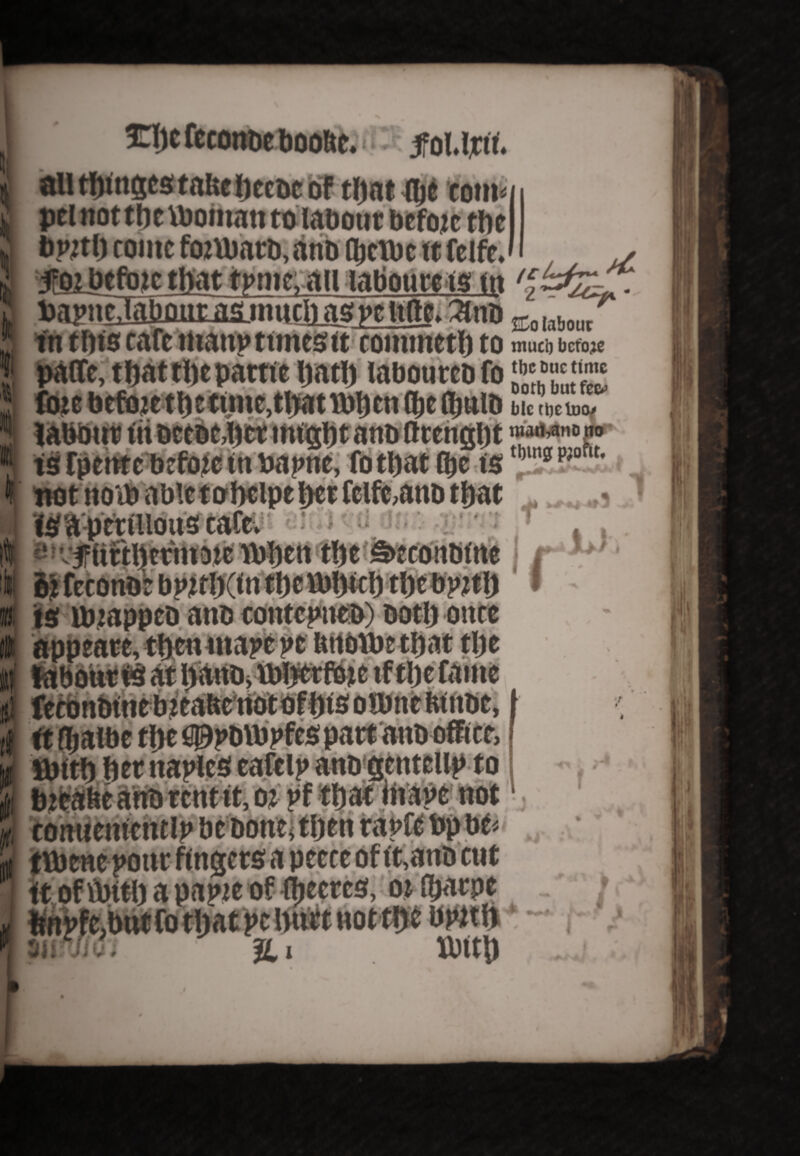 The seconde booke. Fol.lxii.
all thinges take heede of that she com-
pel not the woman to labour before the
byrth come forward, and shewe it selfe.
For before that tyme, all laboure is in
vayne, labour as much as ye liste. And
in this case many times it commeth to
passe, that the partie hath laboured so
sore before the time, that when she shuld
labour in deede, her might and strenght
is spente before in vayne, so that she is
not now able to helpe her selfe, and that
is a perillous case.
Furthermore when the Secondine
or seconde byrth (in the which the byrth
is wrapped and conteyned) doth once
appeare, then maye ye knowe that the
labour is at hand, wherfore if the same
secondine breake not of his owne kinde,
it shalbe the Mydwyfes part and office,
with her nayles easely and gentelly to
breake and rent it, or yf that maye not
conueniently be done, then rayse vp be-
twene your fingers a peece of it, and cut
it of with a payre of sheeres, or sharpe
knyfe, but so that ye hurt not the byrth
L i with
To labour
much before
the due time
doth but fee-
ble the wo-
man, and no
thing profit.